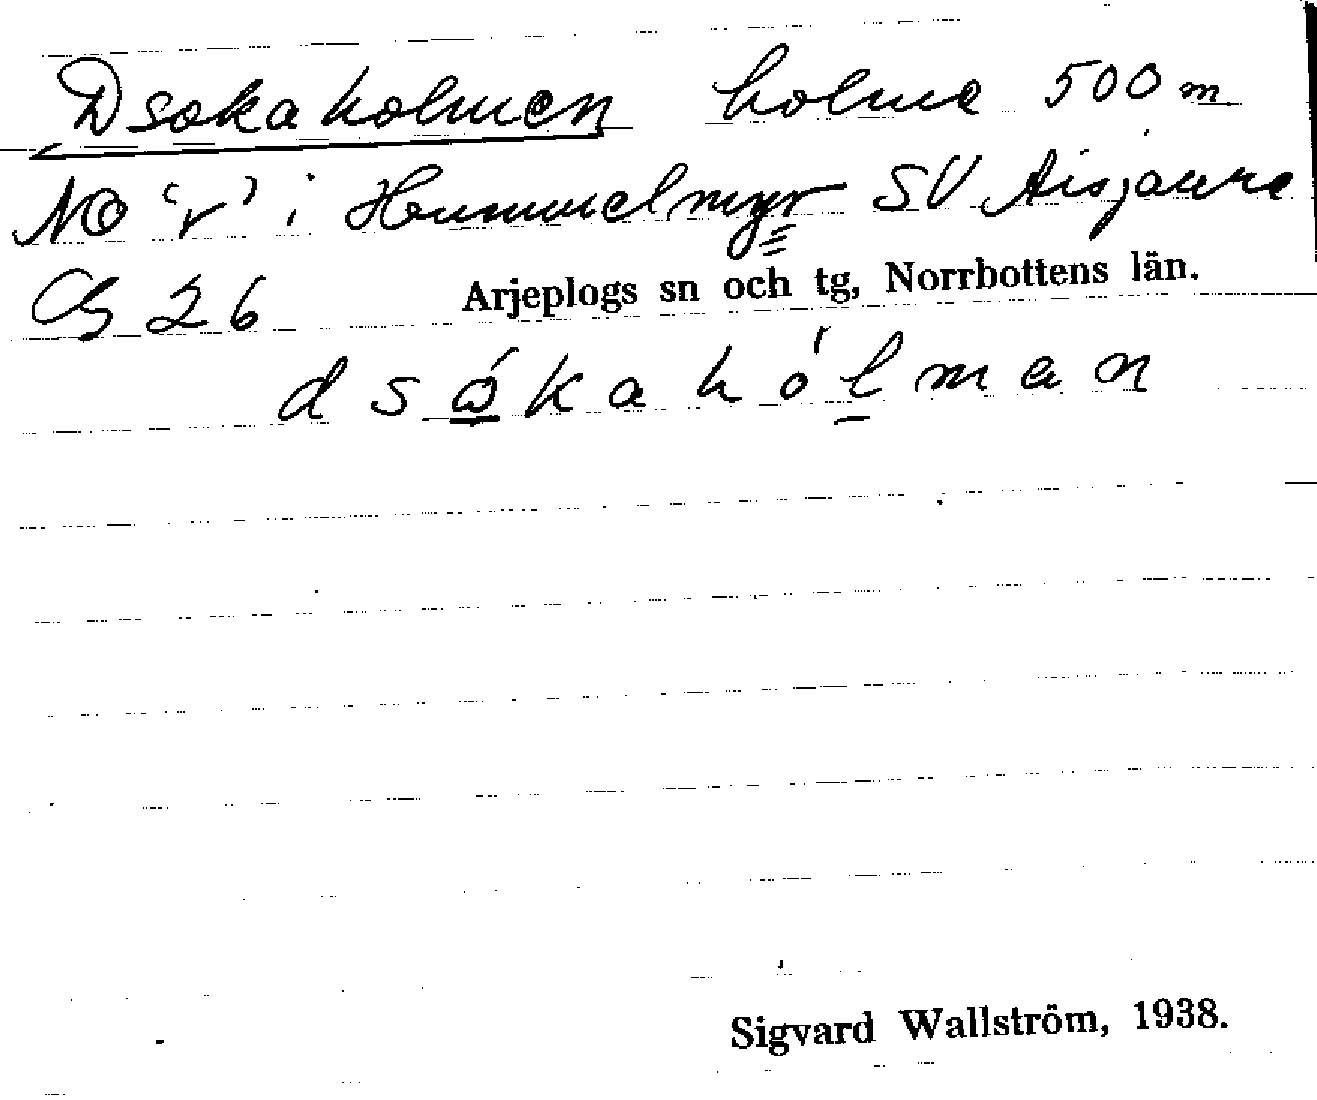 Dsokaholmen holme 500 m
NO 'r' i Hummelmyr SV Aisjaure
G 26 Arjeplogs sn och tg, Norrbottens län.
dsókahólman
Sigvard Wallström, 1938.